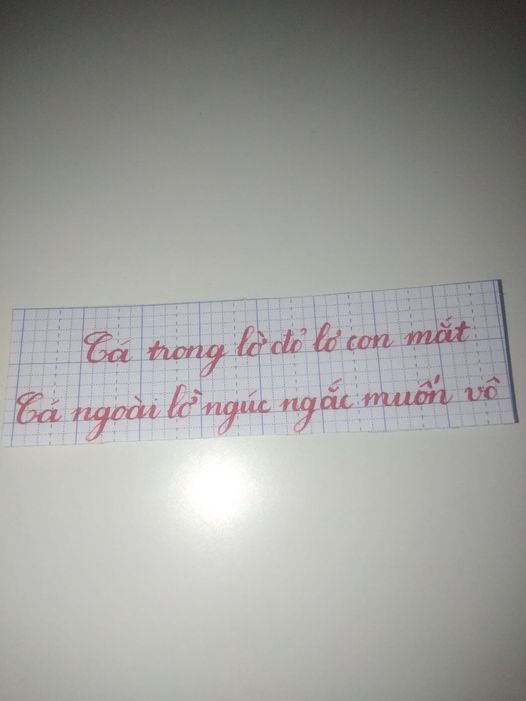 Cá trong lờ đỏ lơ con mắt
Cá ngoài lờ ngúc ngắc muốn vô